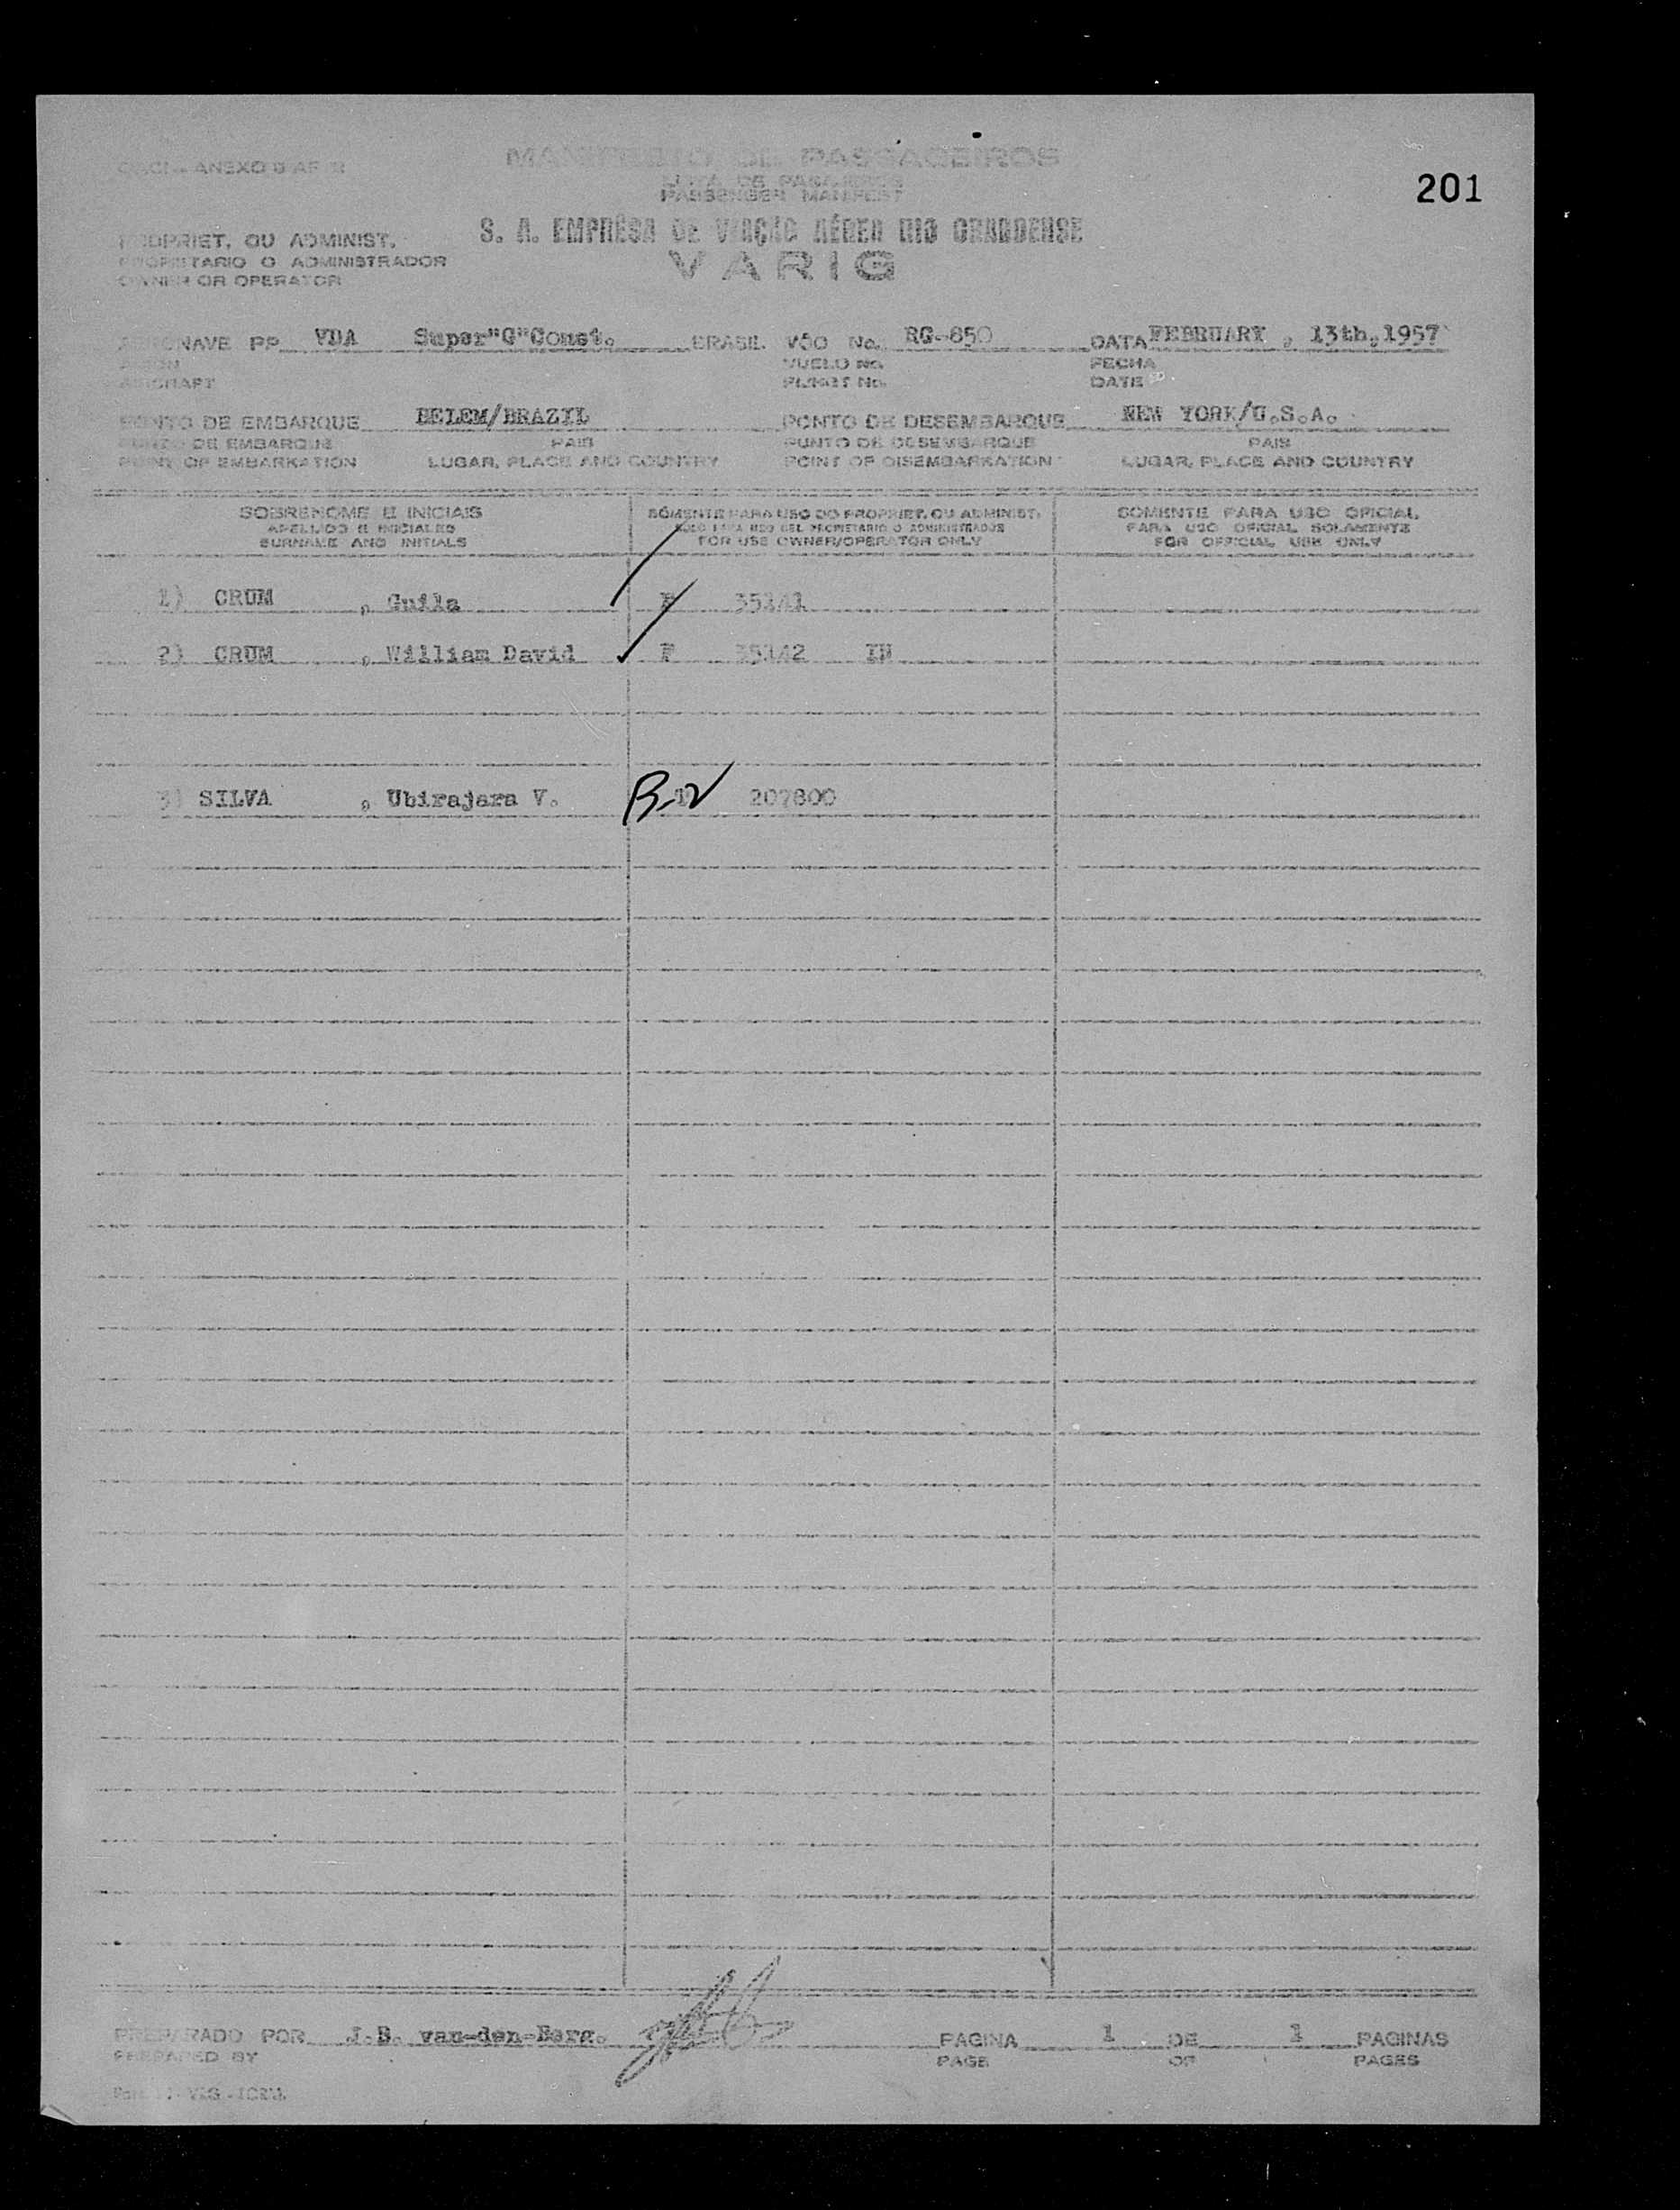 MANIFESTO DE PASSAGEIROS
ANEXO 9
LISTA DE PASAJEROS
PASSENGER MANIFEST
201
S. A. EMPRÊSA DE VIAÇÃO AÉREA RIO GRANDENSE
PROPRIET. OU ADMINIST.
PROPIETARIO O ADMINISTRADOR
VARIG
OWNER OR OPERATOR
AERONAVE PP VDA Super"G"Const. BRASIL VÔO No. RG-850 DATA FEBRUARY , 13th.1957
AVION VUELO No. FECHA
AIRCRAFT FLIGHT No. DATE
PONTO DE EMBARQUE BELEM/BRAZIL PONTO DE DESEMBARQUE NEW YORK/U.S.A.
PUNTO DE EMBARQUE PAIS PUNTO DE DESEMBARQUE PAIS
POINT OF EMBARKATION LUGAR, PLACE AND COUNTRY POINT OF DISEMBARKATION LUGAR, PLACE AND COUNTRY
SOBRENOME E INICIAIS SÓMENTE PARA USO DO PROPRIET. OU ADMINIST. SOMENTE PARA USO OFICIAL
APELLIDO E INICIALES SOLO PARA USO DEL PROPIETARIO O ADMINISTRADOR PARA USO OFICIAL SOLAMENTE
SURNAME AND INITIALS FOR USE OWNER/OPERATOR ONLY FOR OFFICIAL USE ONLY
1) CRUM , Guila F 35141
2) CRUM , William David F 35142 IN
3) SILVA , Ubirajara V. 207800
PREPARADO POR J.B. van-den-Berg. PAGINA 1 DE 1 PAGINAS
PREPARED BY PAGE OF PAGES